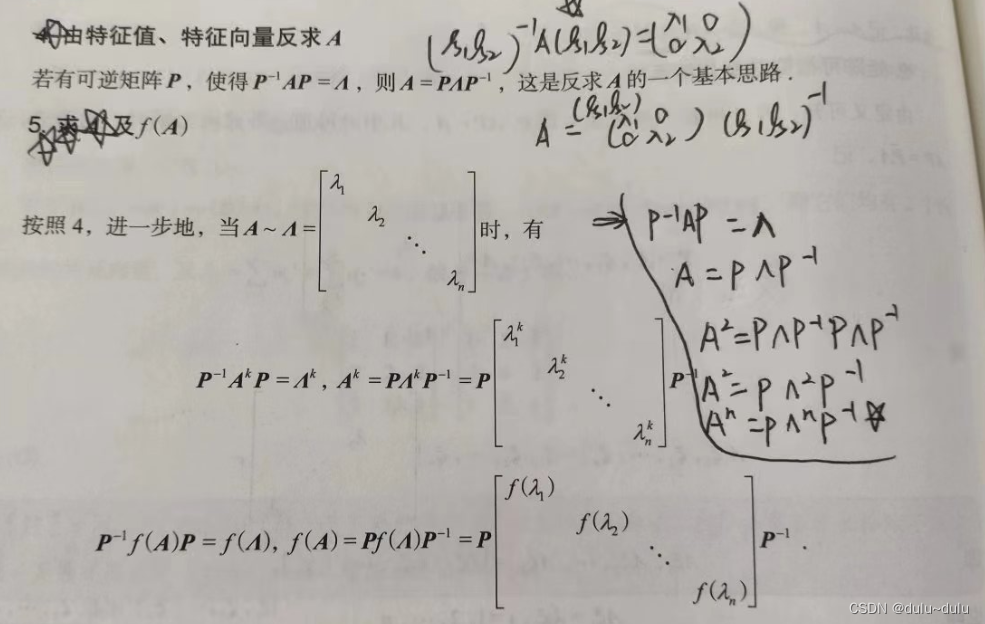 由特征值、特征向量反求A
(ξ₁ξ₂)⁻¹A(ξ₁ξ₂)=(λ₁ 0
0 λ₂)
若有可逆矩阵P，使得P⁻¹AP=Λ，则A=PΛP⁻¹，这是反求A的一个基本思路．
5. 求及f(A)
A = (ξ₁ξ₂)(λ₁ 0
0 λ₂)(ξ₁ξ₂)⁻¹
按照4，进一步地，当A~Λ=[λ₁
λ₂
⋱
λₙ]时，有
⇒ P⁻¹AP = Λ
A = PΛP⁻¹
A²=PΛP⁻¹PΛP⁻¹
A²=PΛ²P⁻¹
Aⁿ=PΛⁿP⁻¹☆
P⁻¹AᵏP=Λᵏ, Aᵏ=PΛᵏP⁻¹=P[λ₁ᵏ
λ₂ᵏ
⋱
λₙᵏ]P⁻¹
P⁻¹f(A)P=f(Λ), f(A)=Pf(Λ)P⁻¹=P[f(λ₁)
f(λ₂)
⋱
f(λₙ)]P⁻¹．
CSDN @dulu~dulu